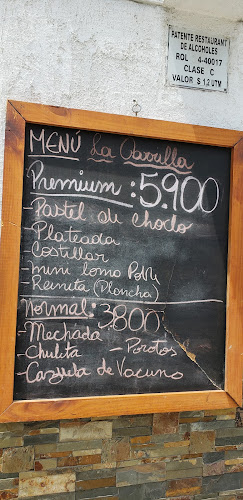 PATENTE RESTAURANT
DE ALCOHOLES
ROL 4-40017
CLASE C
VALOR S 1,2 UTM
MENÚ La Parrilla
Premium: 5.900
- Pastel de choclo
- Plateada
- Costillar
- mini lomo Pobre
- Reineta (Plancha)
Normal: 3.800
- Mechada
- Chuleta - Porotos
- Cazuela de Vacuno